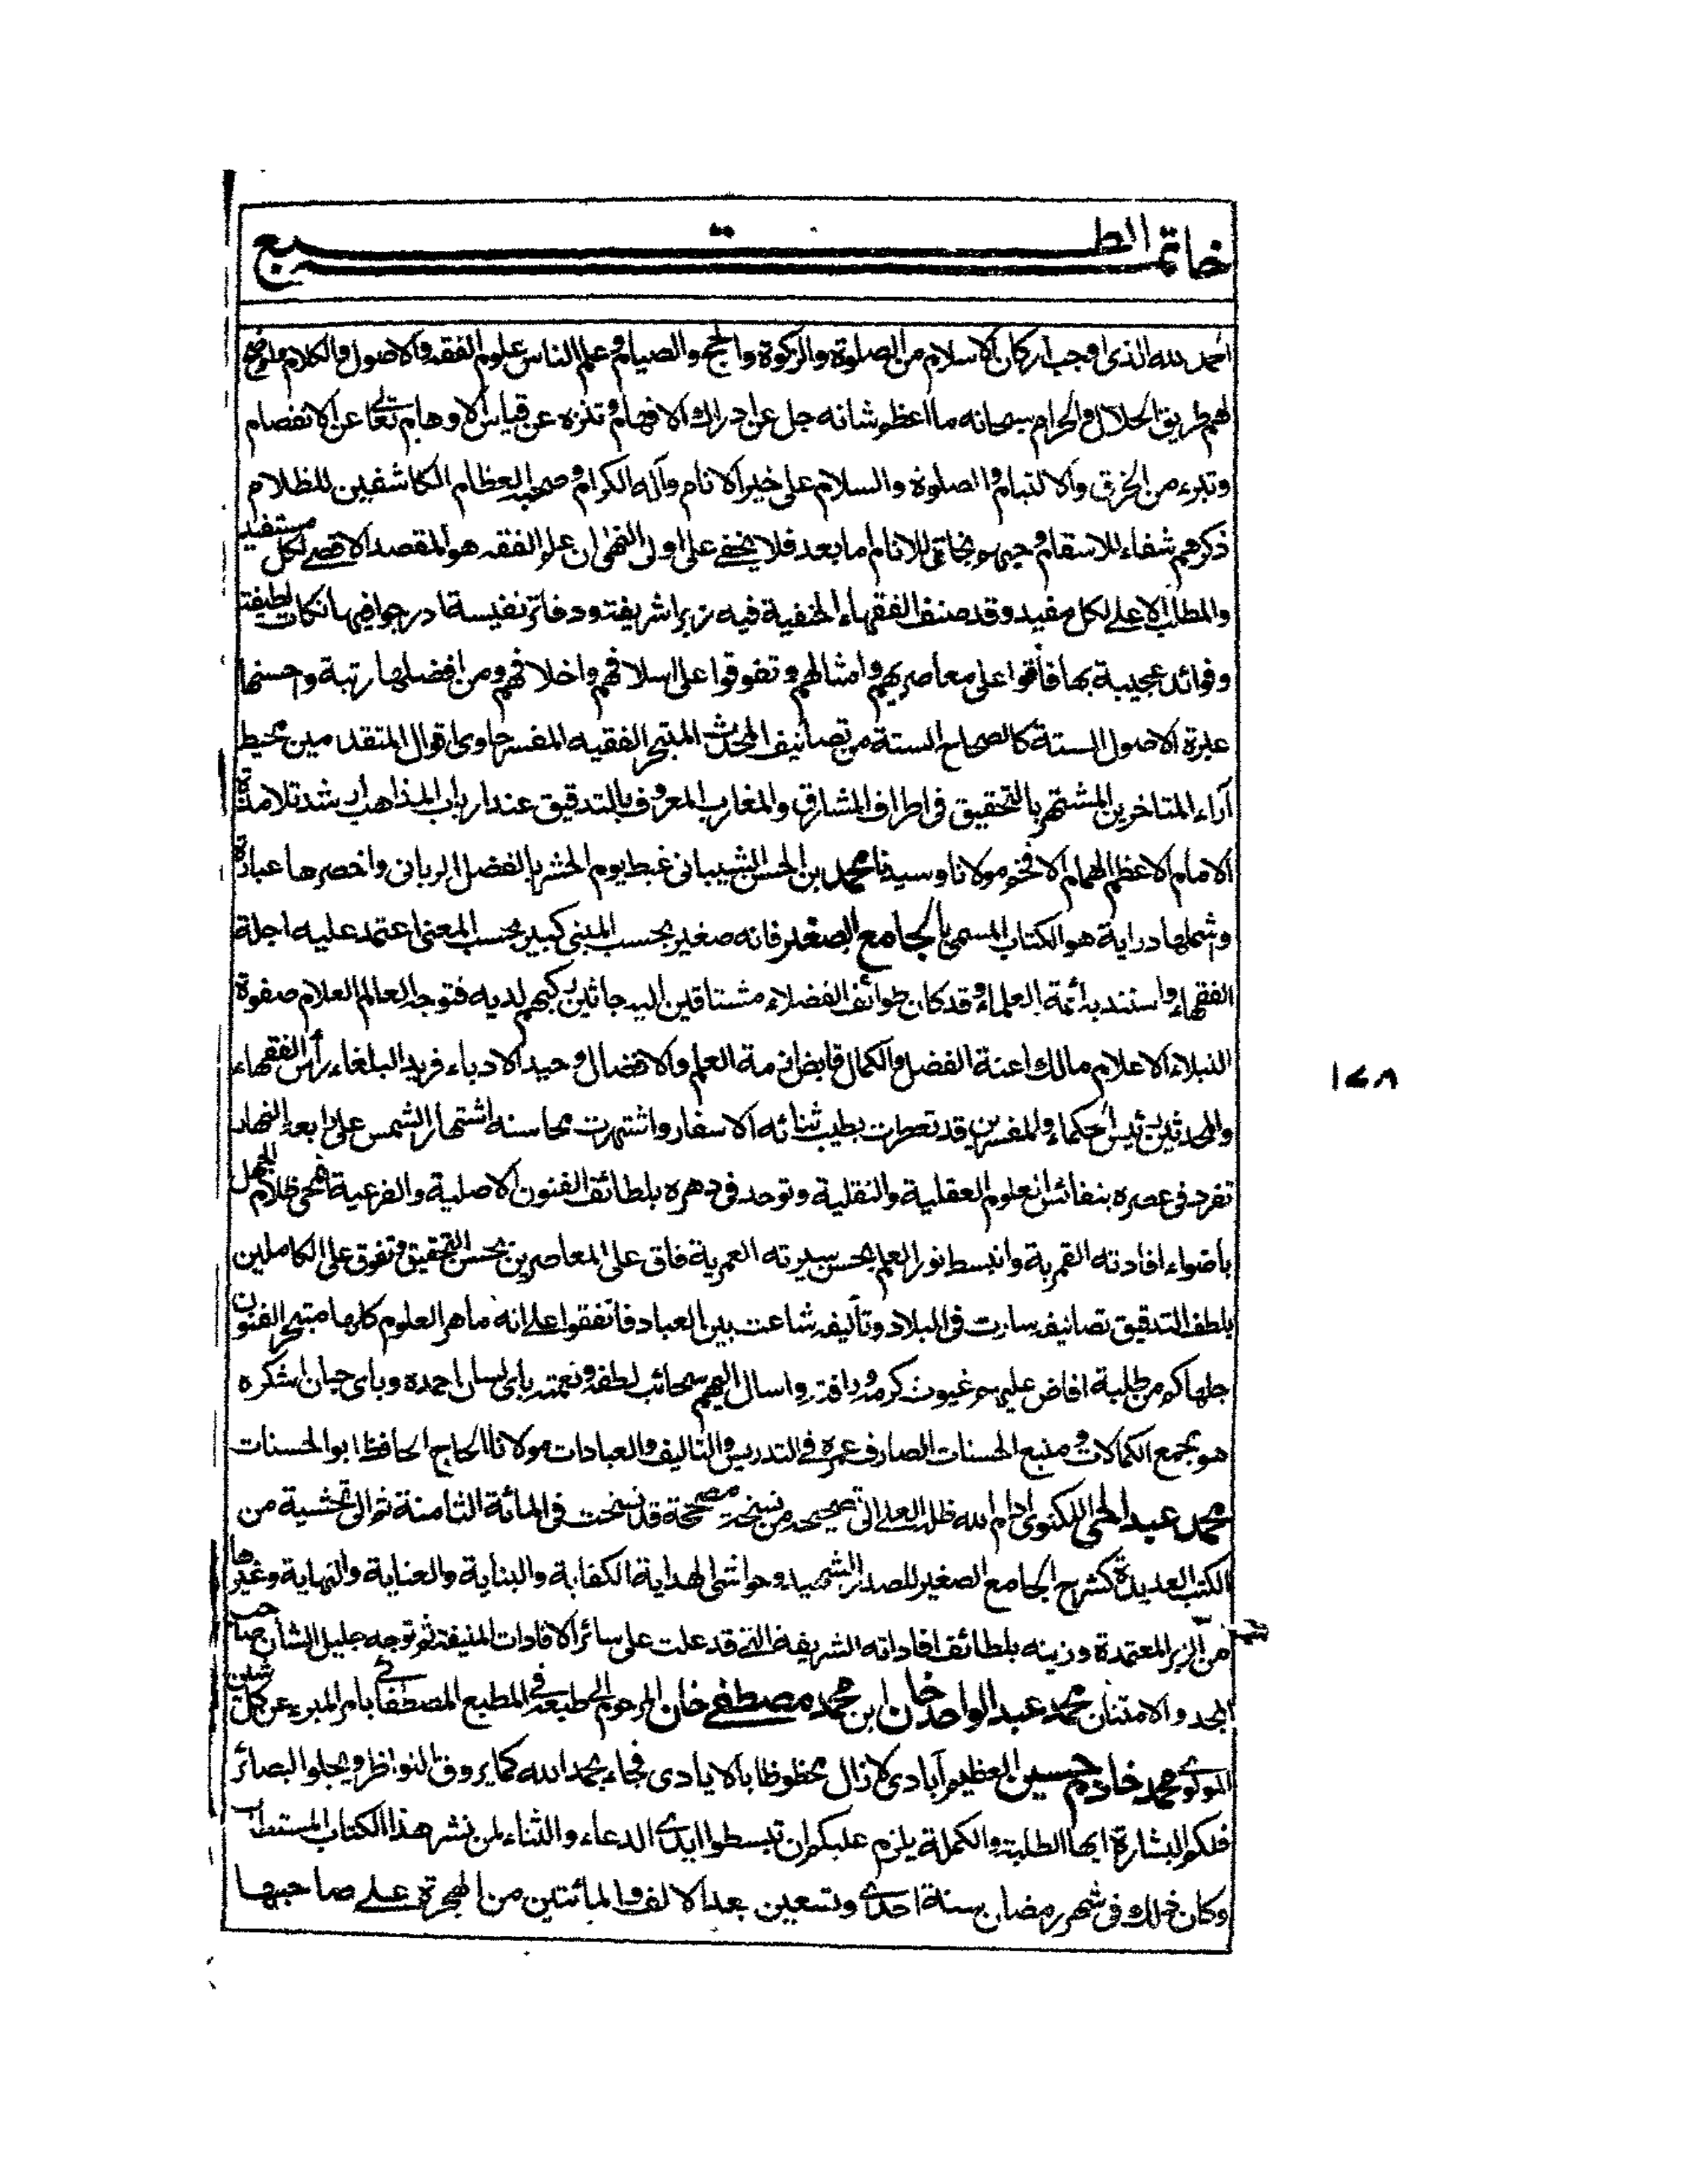 خاتمة الطبع
الحمد لله الذى اوجب اركان الاسلام من الصلوة والزكوة والحج والصيام وعلم الناس علوم الفقه والاصول والكلام واوضح
لهم طريق الحلال والحرام سبحانه ما اعظم شانه جل عن ادراك الافهام وتنزه عن قياس الاوهام تعالى عن الانفصام
وتبرء من الخرق والالتيام والصلوة والسلام على خير الانام وآله الكرام وصحبه العظام الكاشفين للظلام
ذكرهم شفاء للاسقام وحبهم نجاة للانام اما بعد فلا يخفى على اولى النهى ان علم الفقه هو المقصد الاقصى لكل مستفيد
والمطلب الاعلى لكل مفيد وقد صنف الفقهاء الحنفية فيه زبرا شريفة ودفاتر نفيسة ادرجوا فيها نكات لطيفة
وفوائد عجيبة بها فاقوا على معاصريهم وامثالهم وتفوقوا على اسلافهم واخلافهم ومن افضلها رتبة واحسنها
عبرة الاصول الستة كالصحاح الستة من تصانيف المحدث المتبحر الفقيه المفسر حاوى اقوال المتقدمين محيط
آراء المتاخرين المشتهر بالتحقيق فى اطراف المشارق والمغارب المعروف بالتدقيق عند ارباب المذاهب ارشد تلامذة
الامام الاعظم الهمام الافخم مولانا وسيدنا محمد بن الحسن الشيبانى غبط يوم الحشر بالفضل الربانى واخصرها عبارة
واشملها دراية هو الكتاب المسمى بالجامع الصغير فانه صغير بحسب المبنى كبير بحسب المعنى اعتمد عليه اجلة
الفقهاء واستند به ائمة العلماء وقد كان طوائف الفضلاء مشتاقين اليه جاثين ركبهم لديه فتوجه العالم العلام صفوة
النبلاء الاعلام مالك اعنة الفضل والكمال قابض ازمة العلم والافضال وحيد الادباء فريد البلغاء رأس الفقهاء
والمحدثين رئيس الحكماء والمفسرين قد تعطرت بطيب ثنائه الاسفار واشتهرت محاسنه اشتهار الشمس على رابعة النهار
تفرد فى عصره بنفائس العلوم العقلية والنقلية وتوحد فى دهره بلطائف الفنون الاصلية والفرعية انمحى ظلام الجهل
باضواء افادته القمرية وانبسط نور العلم بحسن سيرته العمرية فاق على المعاصرين بحسن التحقيق وتفوق على الكاملين
بلطف التدقيق تصانيفه سارت فى البلاد وتأليفه شاعت بين العباد فاتفقوا على انه ماهر العلوم كلها متبحر الفنون
جلها كم من طلبة افاض عليهم غيوث كرمه ورافته واسال اليهم سحائب لطفه ونعمته باى لسان احمده وباى جنان اشكره
هو مجمع الكمالات ومنبع الحسنات الصارف عمره فى التدريس والتاليف والعبادات مولانا الحاج الحافظ ابو الحسنات
محمد عبد الحى اللكنوى ادام الله ظله العلى الى تصحيحه من نسخة مصححة قد نسخت فى المائة الثامنة ثم الى تحشية من
الكتب العديدة كشرح الجامع الصغير للصدر الشهيد وحواشى الهداية الكفاية والبناية والعناية والنهاية وغيرها
من الزبر المعتمدة وزينه بلطائف افاداته الشريفة التى قد علت على سائر الافادات المنيفة ثم توجه جليل الشان صاحب
المجد والامتنان محمد عبد الواحد خان ابن محمد مصطفى خان المرحوم الى طبعه فى المطبع المصطفائى بامر المبرء عن كل شين
المولوى محمد خادم حسين العظيم آبادى لا زال محظوظا بالايادى فجاء بحمد الله كما يروق النواظر ويجلو البصائر
فلكم البشارة ايها الطلبة والكملة يلزم عليكم ان تبسطوا ايدى الدعاء والثناء لمن نشر هذا الكتاب المستطاب
وكان ذلك فى شهر رمضان سنة احدى وتسعين بعد الالف والمائتين من الهجرة على صاحبها
١٤٨